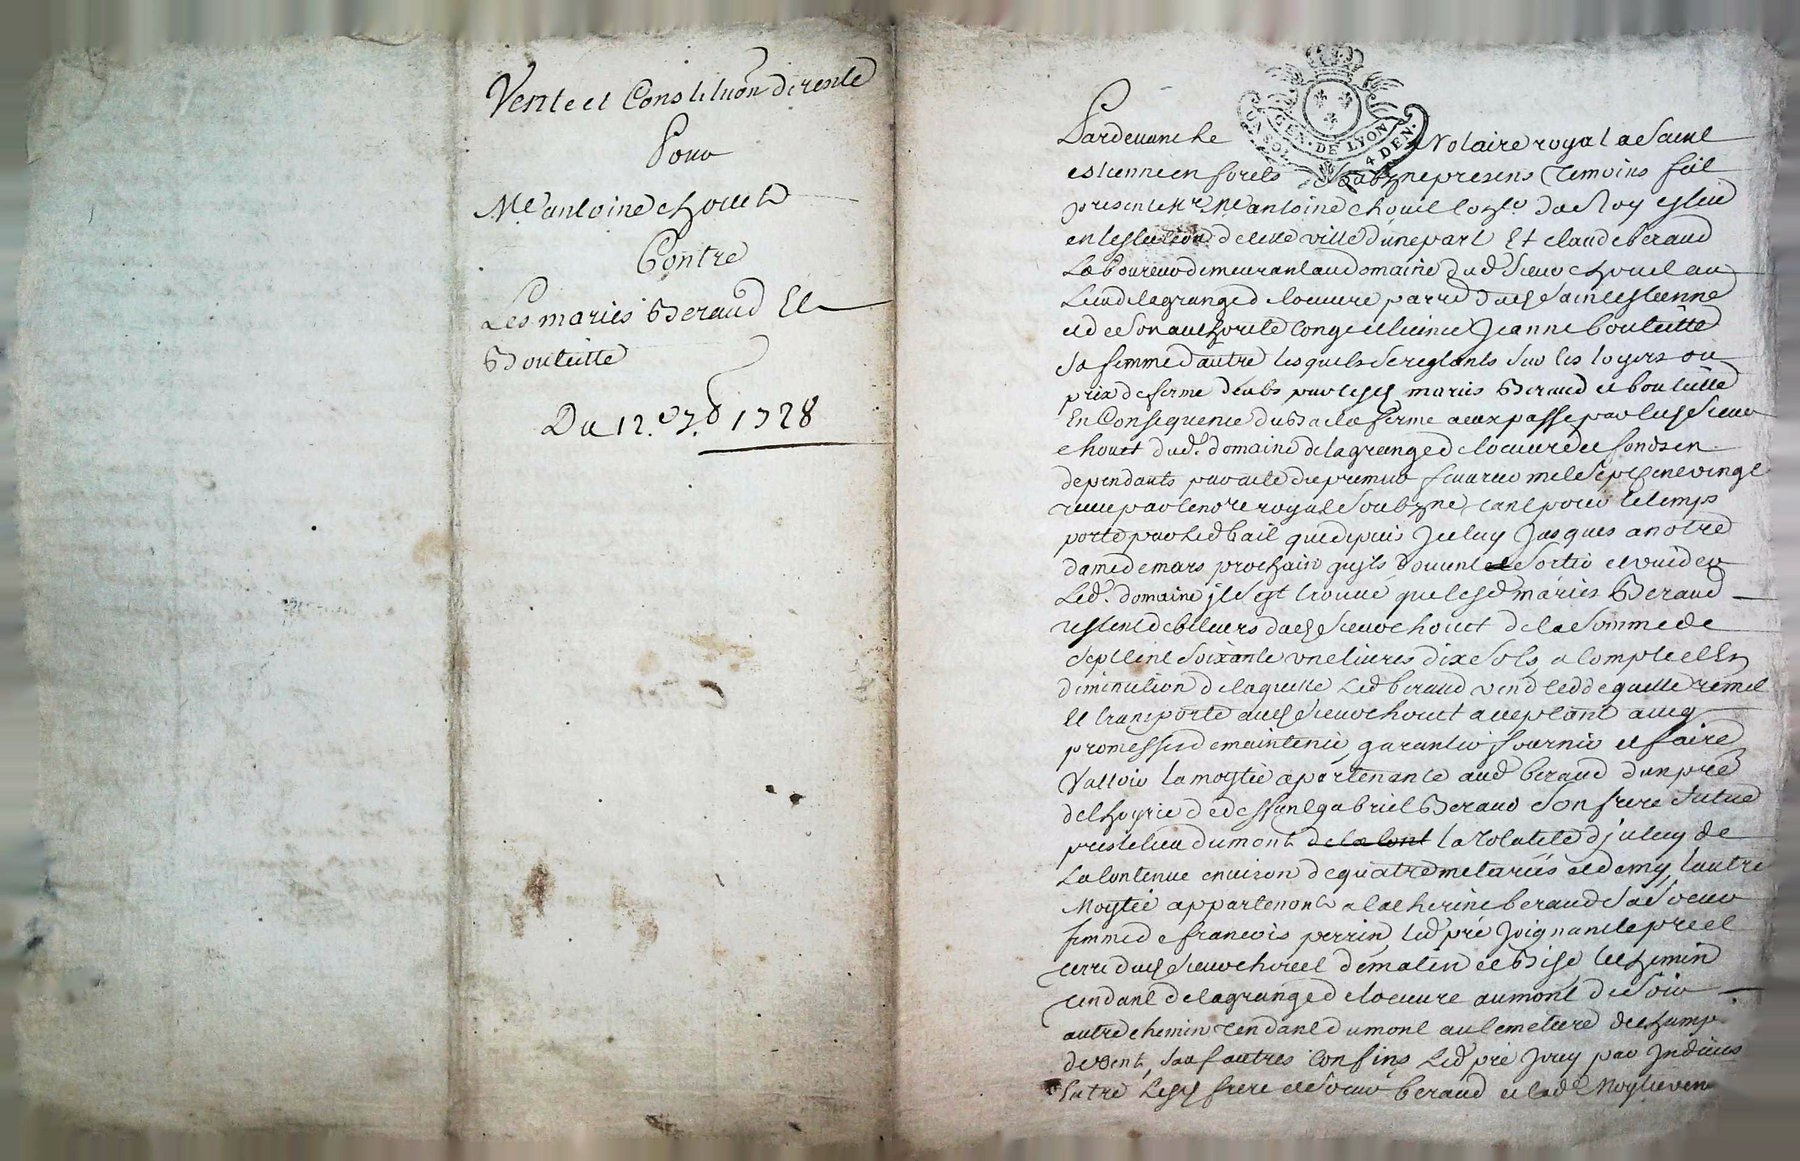 Vente et Constituon de rente
Pour
Me antoine chouet
Contre
Les mariés Beraud Et
Bouteitte
Du 12. 7.b 1728
GEN. DE LYON
UN SOL 4 DEN.
Pardevant le Notaire royal a Saint
estienne en forets soubzne presens temoins fut
present Mr Me antoine chouet du Roy esleu
en leslection de cette ville dune part Et claude beraud
Laboureur demeurant au domaine dud sieur chouet au
Lieu de la grange de loeuure parre dud Saint estienne
et de son authorité conge et licence Jeanne bouteitte
sa femme dautre lesquels se reglants sur les loyers ou
prix de ferme deubs par lesd mariés Beraud et bouteitte
En Consequence du Bail a ferme a eux passé par led sieur
chouet dud. domaine de la grange de loeuure et fonds en
dependants par acte du premier feurier mil sept cent vingt
receu par le nore royal soubzne tant pour le temps
porté par led bail que depuis Jceluy Jusques a notre
dame de mars prochain quils doiuent sortir et vuider
Led. domaine jl sest trouué que lesd mariés Beraud
restent debiteurs dud sieur chouet de la somme de
sept cent soixante vne liures dix sols a compte et En
diminution de laquelle Led beraud vend cedde quitte remet
Et transporte aud sieur chouet acceptant aueq
promesse de maintenir garantir fournir et faire
Valloir la moytié apartenante aud beraud dun pré
de lhoyrie de deffunt gabriel Beraud son frere situé
pres le lieu du mont de la cont la totalité djceluy de
La contenue enuiron de quatre metariés et demy, lautre
Moytié appartenant a catherine beraud sa soeur
femme de francois perrin, led pré Joignant le pre et
terre dud sieur chouet de matin et Bise le chemin
tendant de la grange de loeuure au mont de soir
autre chemin tendant du mont au cemetiere de champ
de vent, sauf autres confins Led pré Jndiuis
Entre Lesd frere et soeur beraud et lad Moytie ven